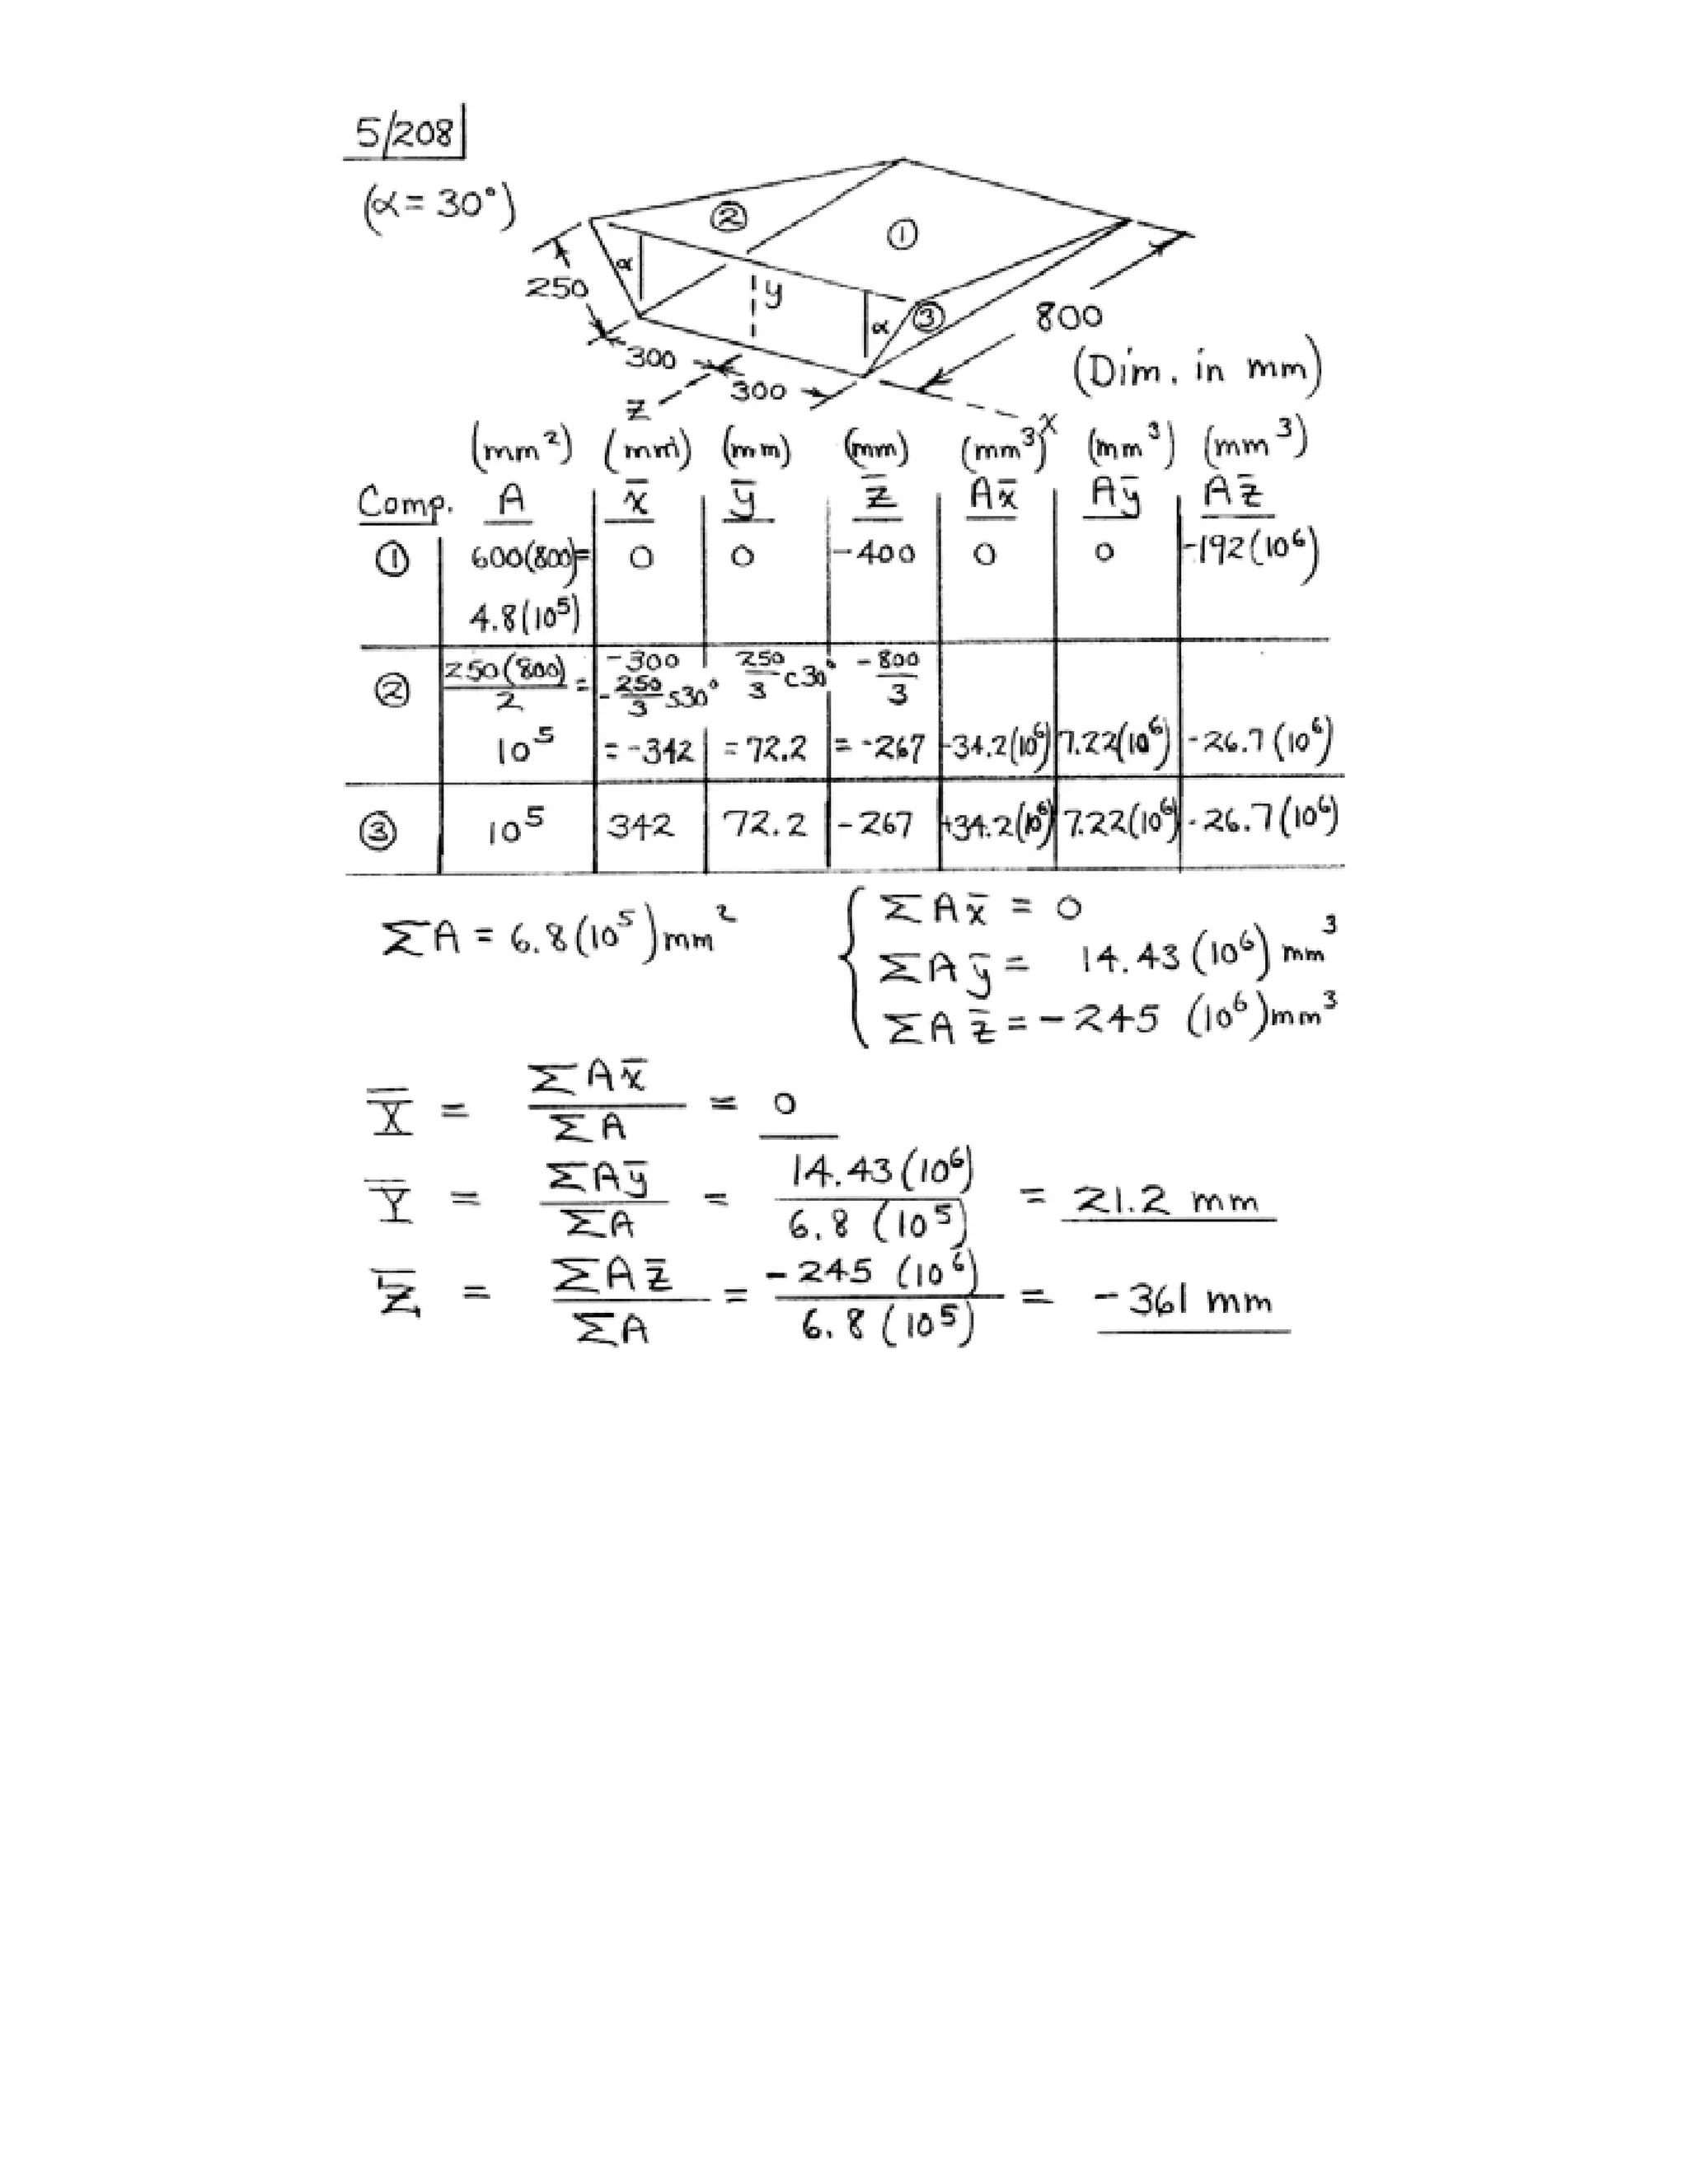 5/208
(α = 30°)
② ①
α
250 y
α ③ 800
300
300 (Dim. in mm)
z x
(mm²) (mm) (mm) (mm) (mm³) (mm³) (mm³)
Comp. A x̄ ȳ z̄ Ax̄ Aȳ Az̄
① 600(800)= 0 0 -400 0 0 -192(10⁶)
4.8(10⁵)
② 250(800)/2 = -300 - 250/3 s30° 250/3 c30° -800/3
10⁵ = -342 = 72.2 = -267 -34.2(10⁶) 7.22(10⁶) -26.7(10⁶)
③ 10⁵ 342 72.2 -267 +34.2(10⁶) 7.22(10⁶) -26.7(10⁶)
ΣA = 6.8(10⁵)mm²
ΣAx̄ = 0
ΣAȳ = 14.43(10⁶) mm³
ΣAz̄ = -245 (10⁶)mm³
X̄ = ΣAx̄/ΣA = 0
Ȳ = ΣAȳ/ΣA = 14.43(10⁶)/6.8(10⁵) = 21.2 mm
Z̄ = ΣAz̄/ΣA = -245(10⁶)/6.8(10⁵) = -361 mm